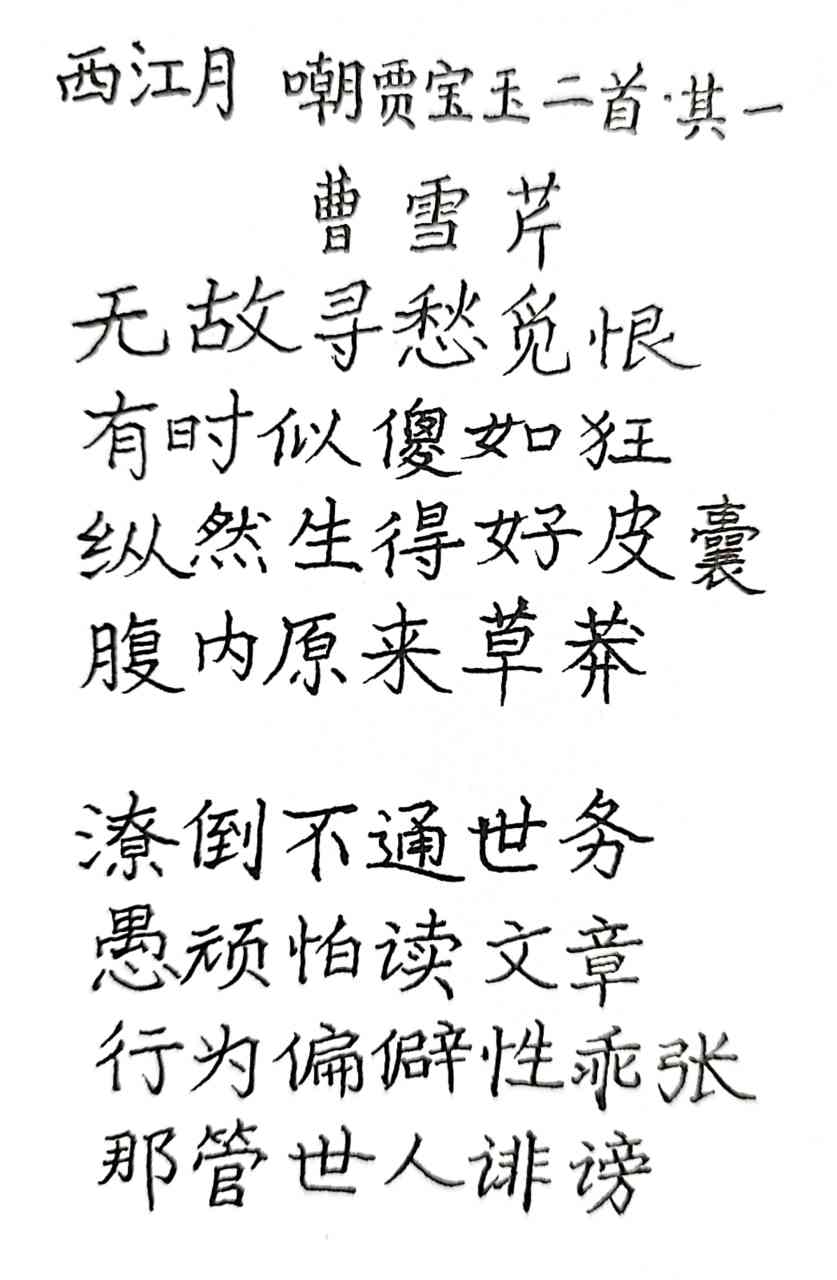 西江月 嘲贾宝玉二首·其一
曹雪芹
无故寻愁觅恨
有时似傻如狂
纵然生得好皮囊
腹内原来草莽
潦倒不通世务
愚顽怕读文章
行为偏僻性乖张
那管世人诽谤